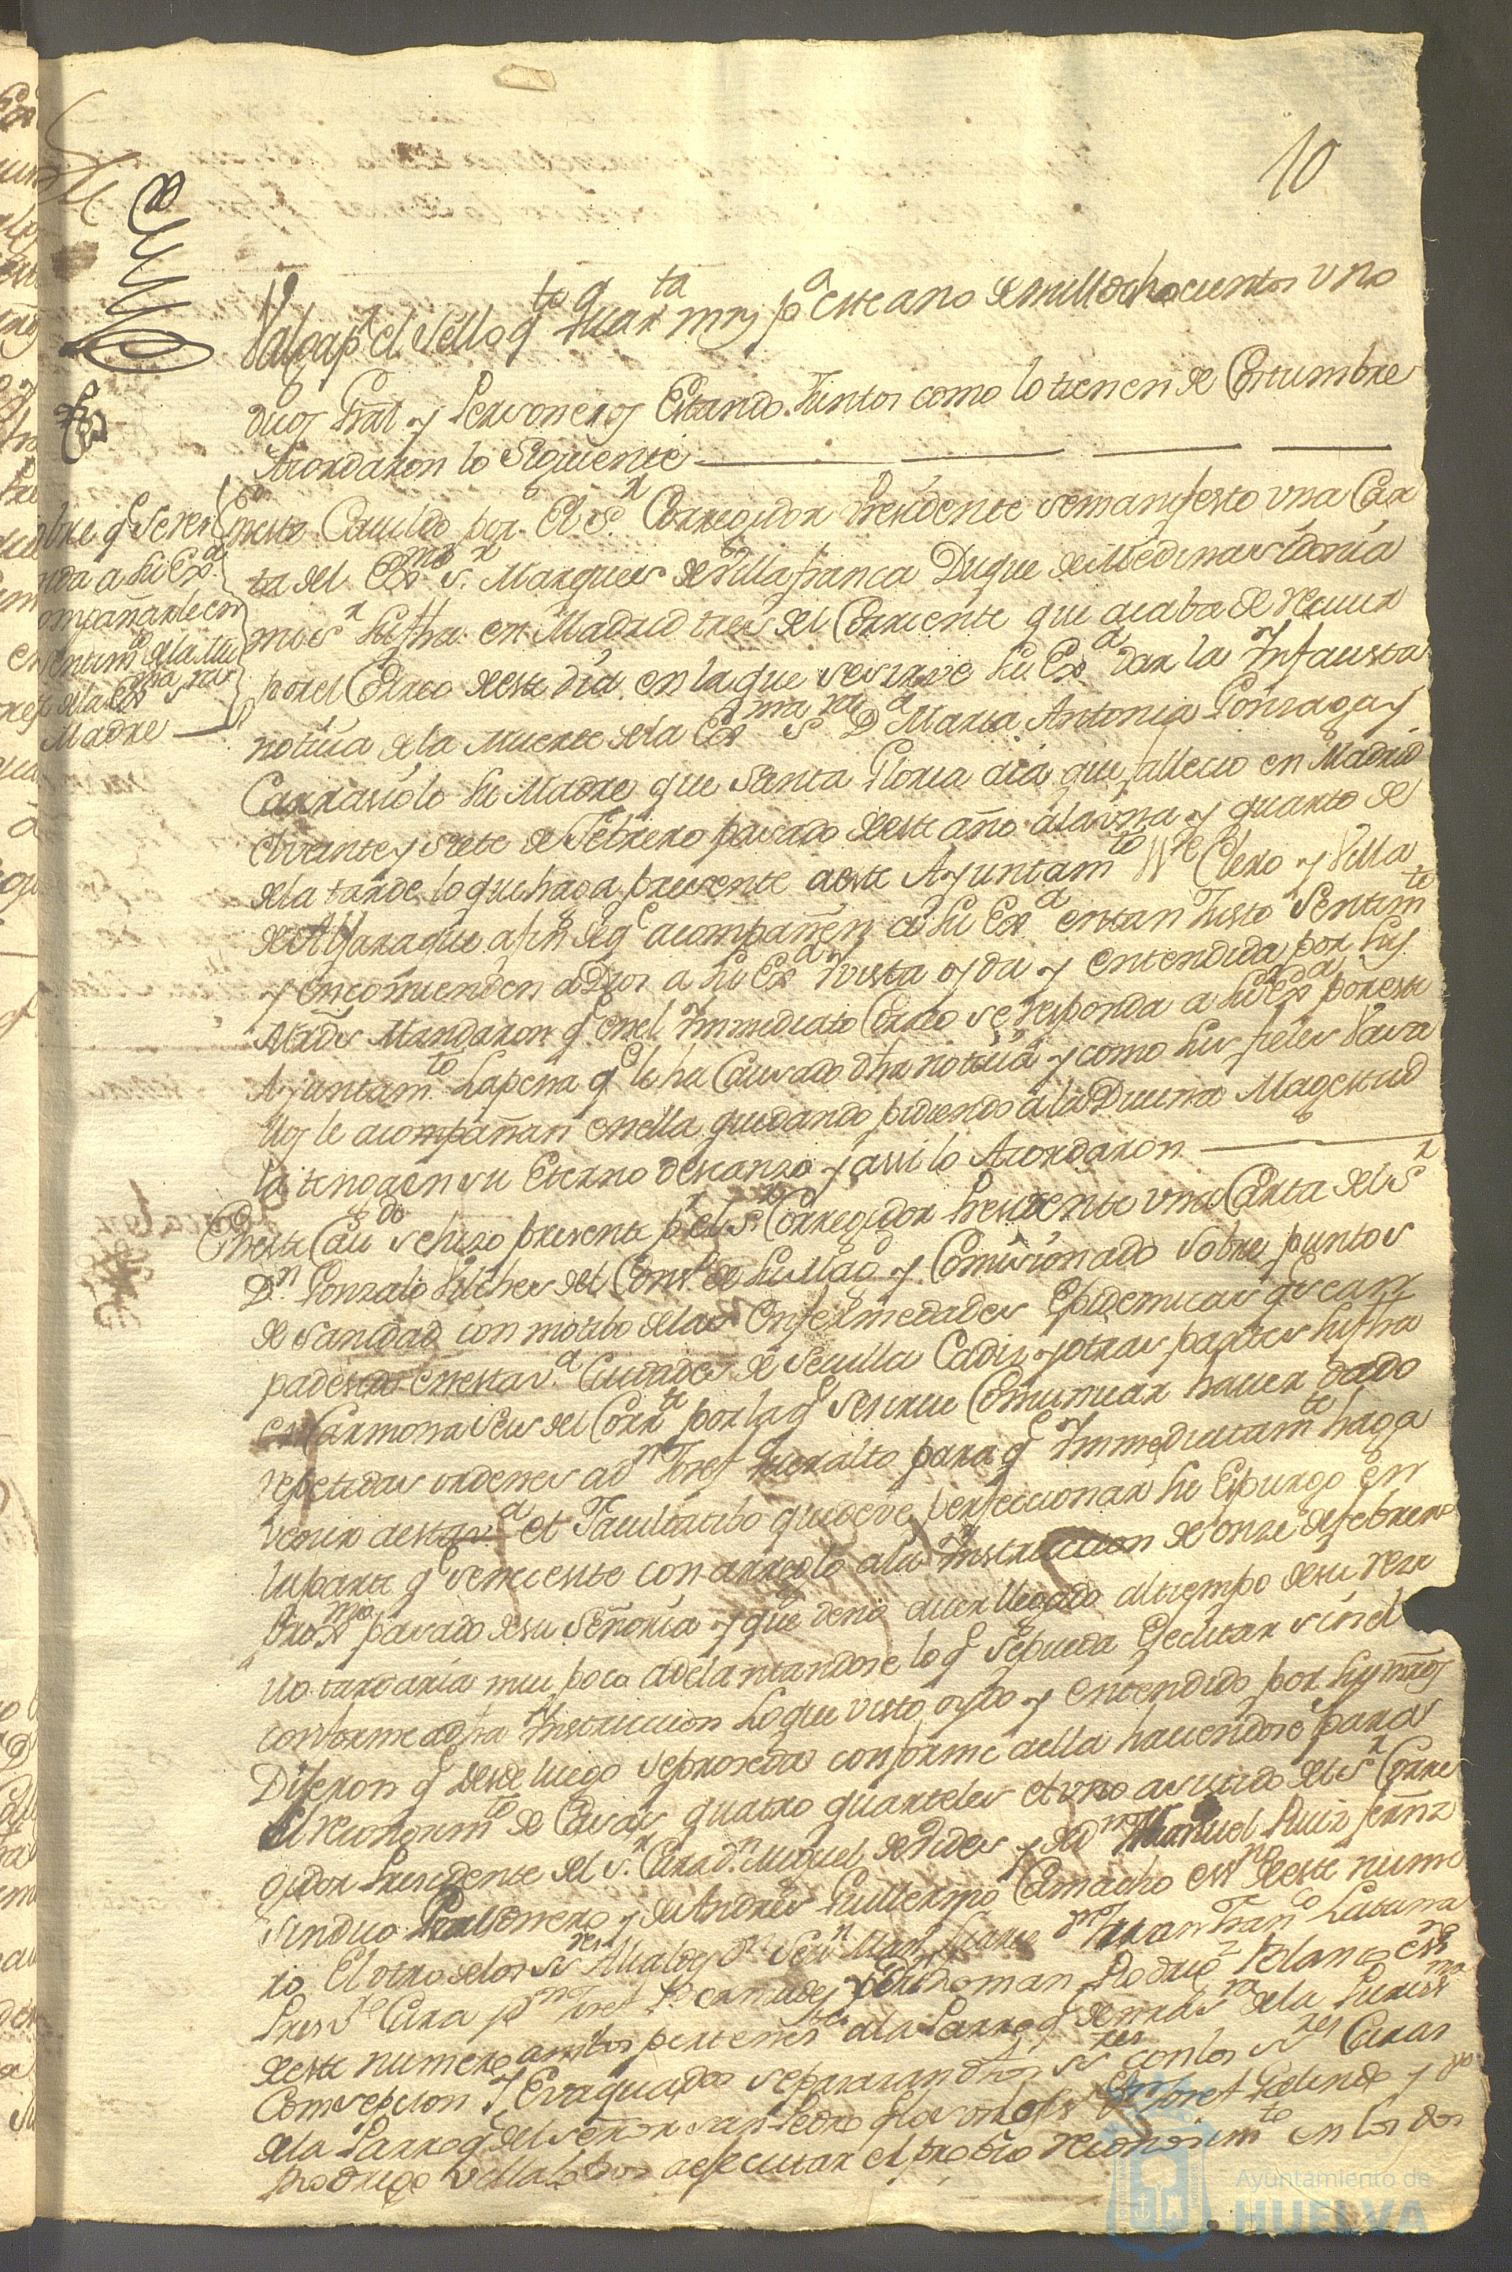 10
Valga pr. el Sello qto. quarta mrs pa este año de mill ochocientos uno
dicos Gral y Personeros Estando Juntos como lo tienen de Costumbre
Acordaron lo Siguiente
obre q Se res
nda a Su Exa.
ompañarle en
sentimto. de la mu
de la Exma. Sra.
Madre
En este Cavildo por El Sor. Corregidor Presidente se manifesto una Car
ta del Exmo. Sr. Marques de Villafranca Duque de Medina Sidonia
mi Sr. Su fha en Madrid tres del Corriente que acaba de recivir
por el Correo de este dia en la que se sirve Su Exa. dar la Infausta
noticia de la Muerte de la Exma. Sra. Da. Maria Antonia Gonzaga y
Carraciolo su Madre que Santa Gloria aia que fallecio en Madrid
el veinte y siete de Febrero pasado de este año a la una y quarto de
de la tarde lo que haga presente a este Ayuntamto. Ve. Clero y Villa
de Aljaraque a fin de qe acompañen a Su Exa. en tan Justo Sentimto.
y encomienden a Dios a Su Exa. Y vista oyda y entendida por Sus
Mrds. Mandaron qe en el Immediato Correo se responda a Su Exa. por este
Ayuntamto. la pena qe le ha Causado dha noticia y como sus fieles Vasa
llos le acompañan en ella quedando pidiendo a la Divina Magestad
la tenga en su Eterno descanso y assi lo Acordaron
En este Cavdo. se hizo presente pr el Sr. Corregidor Presidente una Carta del Sr.
Dn. Gonzalo Vilches del Consº. de Su Magd. y Comisionado Sobre puntos
de Sanidad con motibo de las Enfermedades Epidemicas q se an
padesido en esta Va. Ciudades de Sevilla Cadiz y otras partes Su fha
en Carmona Seis del Corrte. por la qe se sirve Comunicar haver dado
repetidas ordenes a Dn. Josef Queralto para qe Immediatamte. haga
venir a esta Va. el Facultatibo que deve perfeccionar su Espurgo en
la parte qe se necesite con arreglo a la Instruccion de onze de febrero
Proxmo. pasado de su Señoria y que deve aver llegado al tiempo de su reci
vo tardaria mui poco adelantandose lo qe se pueda Executar sin el
conforme a dha Instruccion Lo que visto oydo y entendido por Sus mrds
Dijeron qe desde luego se proseda conforme a ella haciendose para
el reconosimto. de Casas quatro quarteles el uno asistido del Sr. Corre
gidor Presidente del Sr. Cura Dn. Miguel de Vides y de Dn. Manuel Ruiz Fernz
Sindico Personero y de Andres Guillermo Camacho essno. de este nume
ro El otro de los Sres. Alcalde Dn. Juan Franco.
Presvo. Cura Dn. Josef y de Roman Rodrigz. Polanco essno.
de este numero ambos pertenesen a la Parroqa. de nra Sra. de la Purissma.
Consepcion Y Evaquados separaran dhos Sres. con los Sres. Curas
de la Parroqa. del Señor San Pedro Josef Galindo y Dn.
Rodrigo Villalobos a ejecutar el propio reconosimto. en los dos
Ayuntamiento de
HUELVA